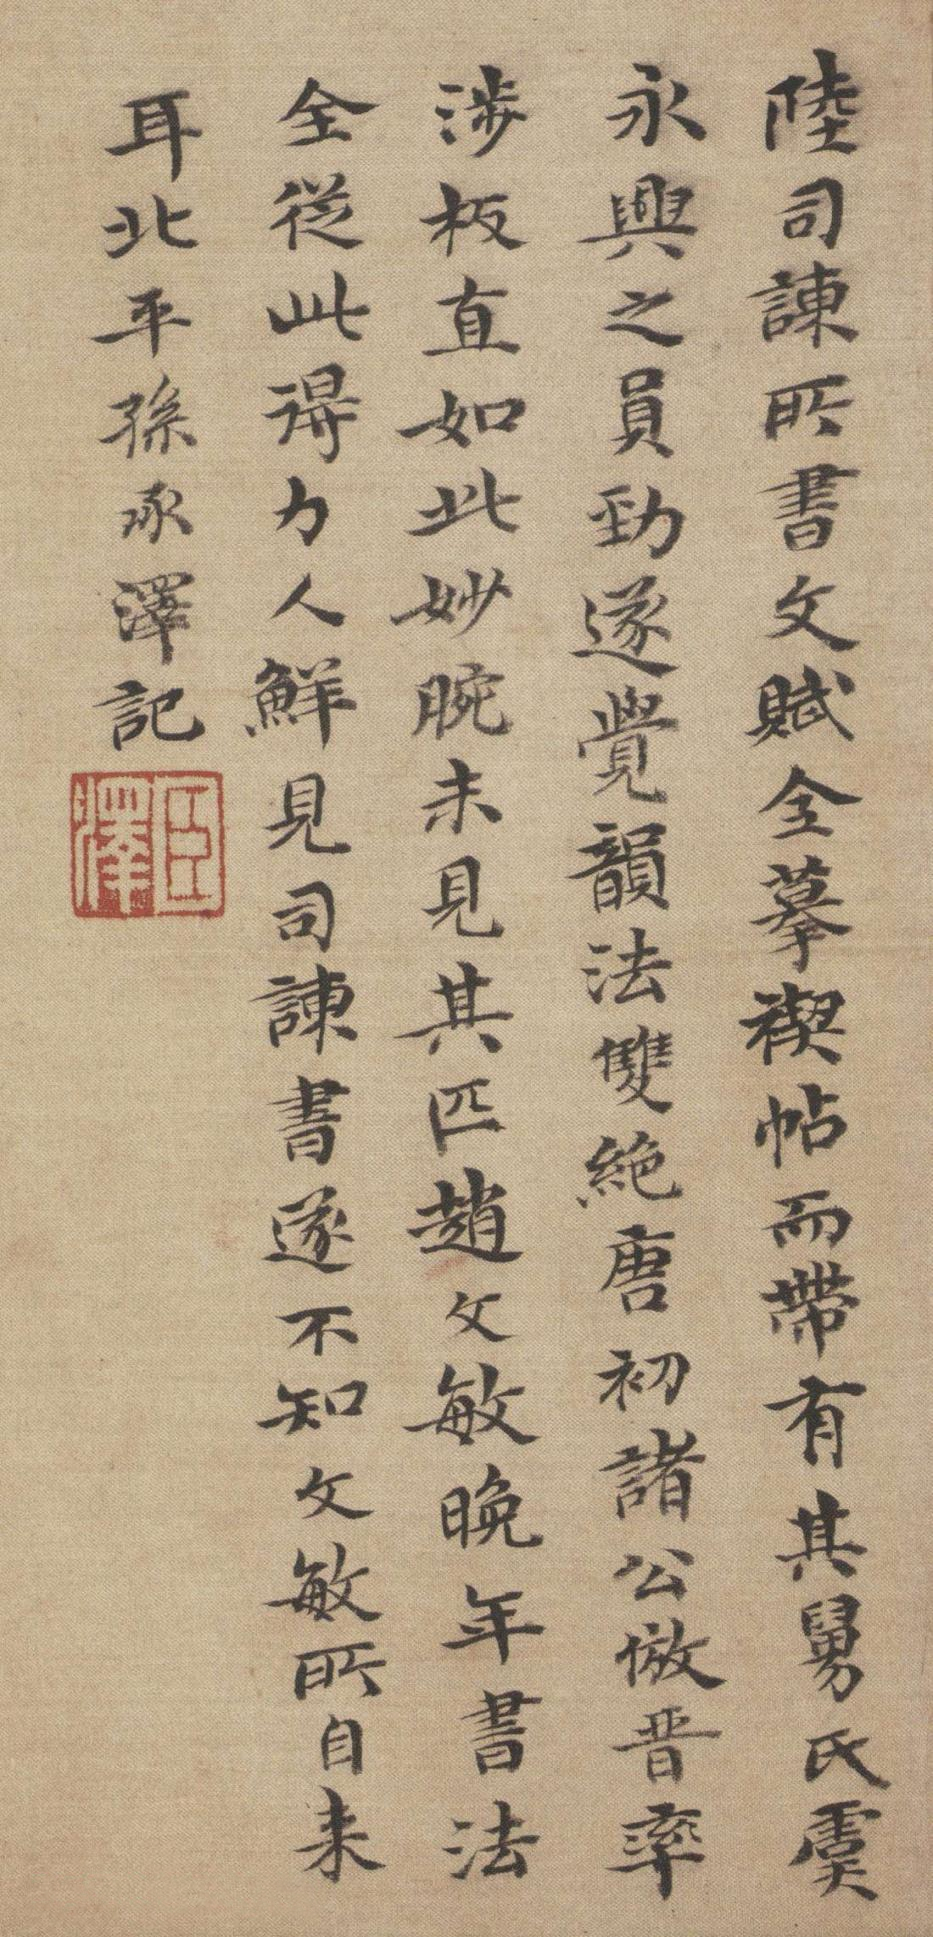 陸司諫所書文賦全摹禊帖而帶有其舅氏虞
永興之員勁遂覺韻法雙絶唐初諸公倣晉率
渉板直如此妙腕未見其匹趙文敏晚年書法
全從此得力人鮮見司諫書遂不知文敏所自来
耳北平孫承澤記
臣澤